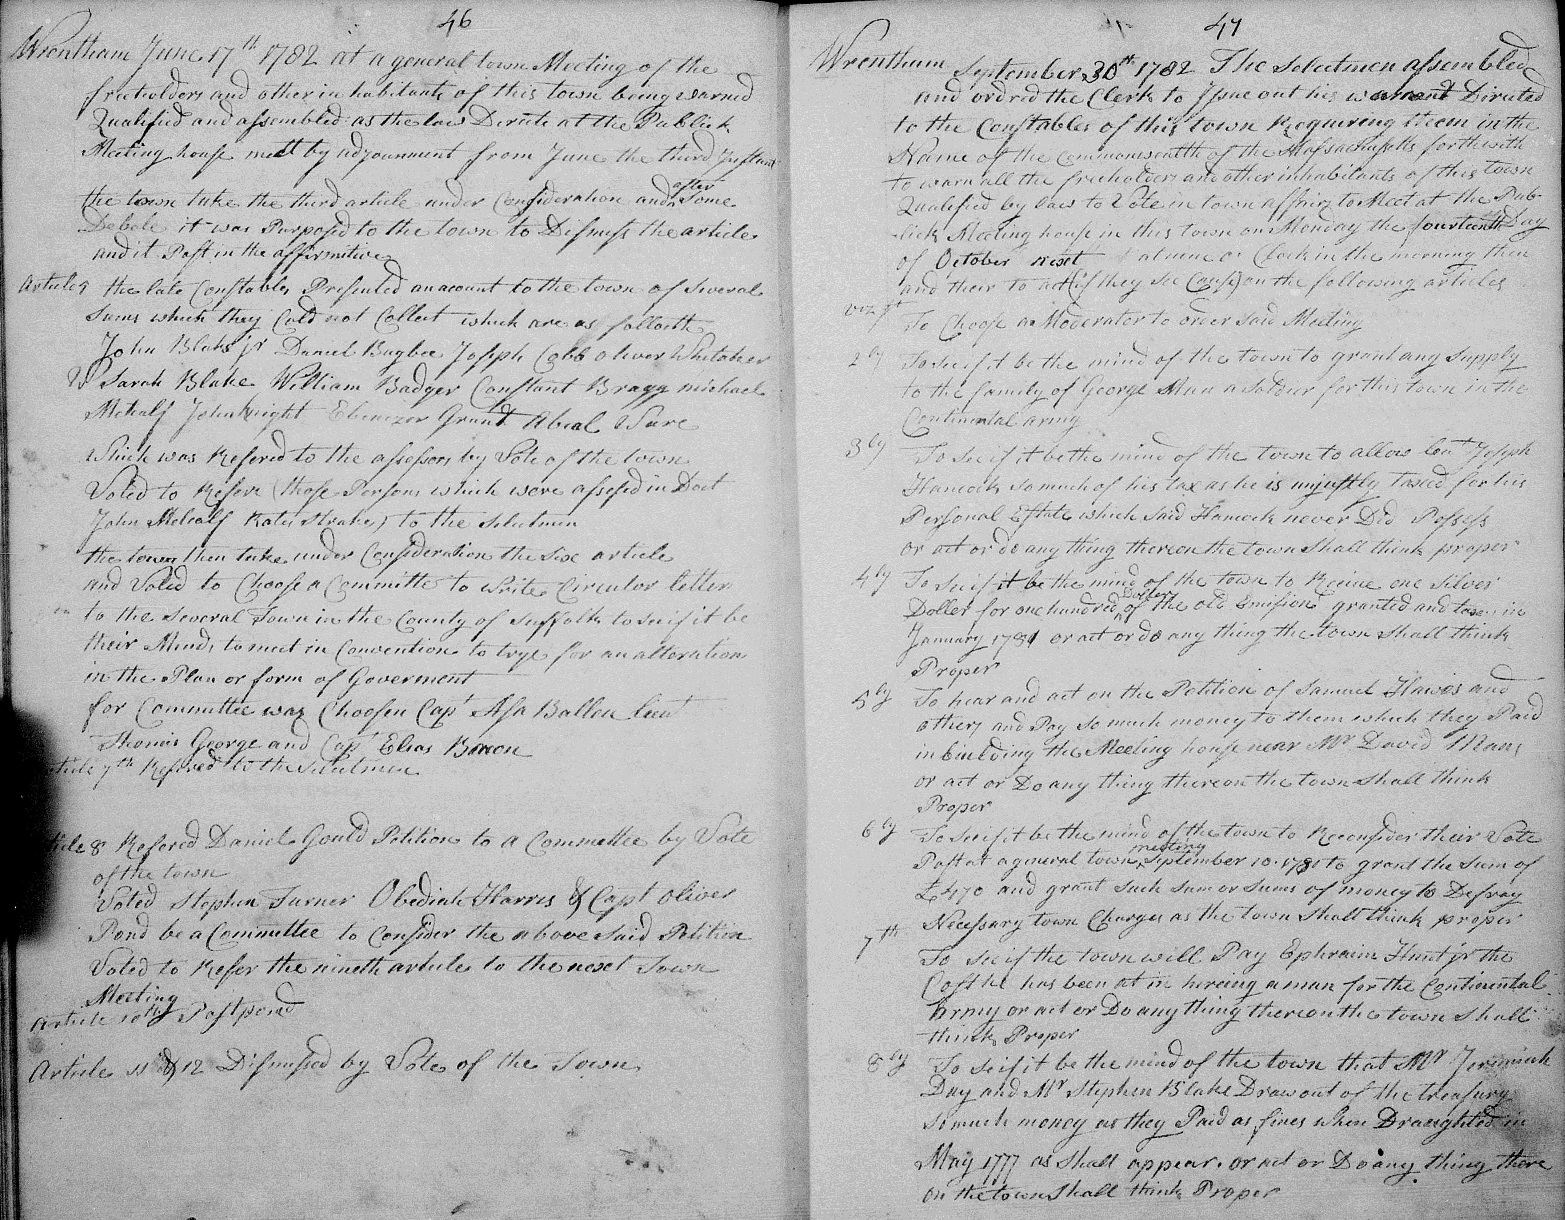 46
Wrentham June 17th 1782 at a general town Meeting of the
freeholders and other inhabitants of this town being warned
Qualified and assembled as the law Directs at the Publick
Meeting house mett by adjournment from June the third Instant
the town take the third article under Consideration and after some
Debate it was Purposed to the town to Dismiss the article
and it Past in the affirmitive
Article 5 the late Constables Presented an acount to the town of Several
Sums which they Could not Collect which are as followeth
John Blake jr Daniel Bugbee Joseph Cobb oliver Whitaker
Wd Sarah Blake William Badger Constant Bragg michael
Metcalf John Wright Ebenezer Grant Abial Ware
Which was Refered to the assessors by Vote of the town
Voted to Refere (those Persons which were assessed in Doct
John Metcalf Rates Strakes) to the Selectmen
the town then take under Consideration the six article
and Voted to Choose a Committe to write Circuler letter
to the several Town in the County of Suffolk to see if it be
their Minds to meet in Convention to trye for an alteration
in the Plan or form of Goverment
for Committee was Choosen Capt Asa Ballou lieut
Thomas George and Capt Elias Bacon
Article 7th Refered to the Selectmen
Article 8 Refered Daniel Gould Petition to a Committee by Vote
of the town
Voted Stephen Turner Obediah Harris & Capt oliver
Pond be a Committee to Consider the above said Petition
Voted to Refer the nineth article to the next Town
Meeting
Article 10th Postpond
Article 11 & 12 Dismissed by Vote of the Town
47
Wrentham September 30th 1782 The Selectmen assembled
and ordred the Clerk to Issue out his warrant Directed
to the Constables of this town Requiring them in the
Name of the Commonwealth of the Massachusetts forthwith
to warn all the freeholders and other inhabitants of this town
Qualified by law to Vote in town affairs to Meet at the Pub-
lick Meeting house in this town on Monday the fourteenth Day
of October next at nine o Clock in the morning then
and their to act (if they see Cause) on the following articles
viz 1st To Choose a Moderator to order said Meeting
2ly To see if it be the mind of the town to grant any Supply
to the family of George Man a Soldier for this town in the
Continental army
3ly To see if it be the mind of the town to allow Leut Joseph
Hancock so much of his tax as he is unjustly taxed for his
Personal Estate which said Hancock never Did Possess
or act or do any thing thereon the town Shall think proper
4ly To see if it be the mind of the town to Receive one Silver
Doller for one hundred Dollers of the old Emision granted and taxed in
January 1781 or act or do any thing the town Shall think
Proper
5ly To hear and act on the Petition of Samuel Hawes and
others and Pay so much money to them which they Paid
in building the Meeting house near Mr David Mans
or act or Do any thing thereon the town shall think
Proper
6ly To see if it be the mind of the town to Reconsider their Vote
Past at a general town meeting September 10. 1781 to grant the Sum of
£470 and grant Such Sum or Sums of money to Defray
Necessary town Charges as the town Shall think proper
7th To see if the town will Pay Ephraim Hunt jr the
Cost he has been at in hereing a man for the Continental
Army or act or Do any thing thereon the town Shall
think Proper
8ly To see if it be the mind of the town that Mr Jeremiah
Day and Mr Stephen Blake Draw out of the treasury
so much money as they Paid as fines when Draughted in
May 1777 as Shall appear. or act or Do any thing there
on the town Shall think Proper